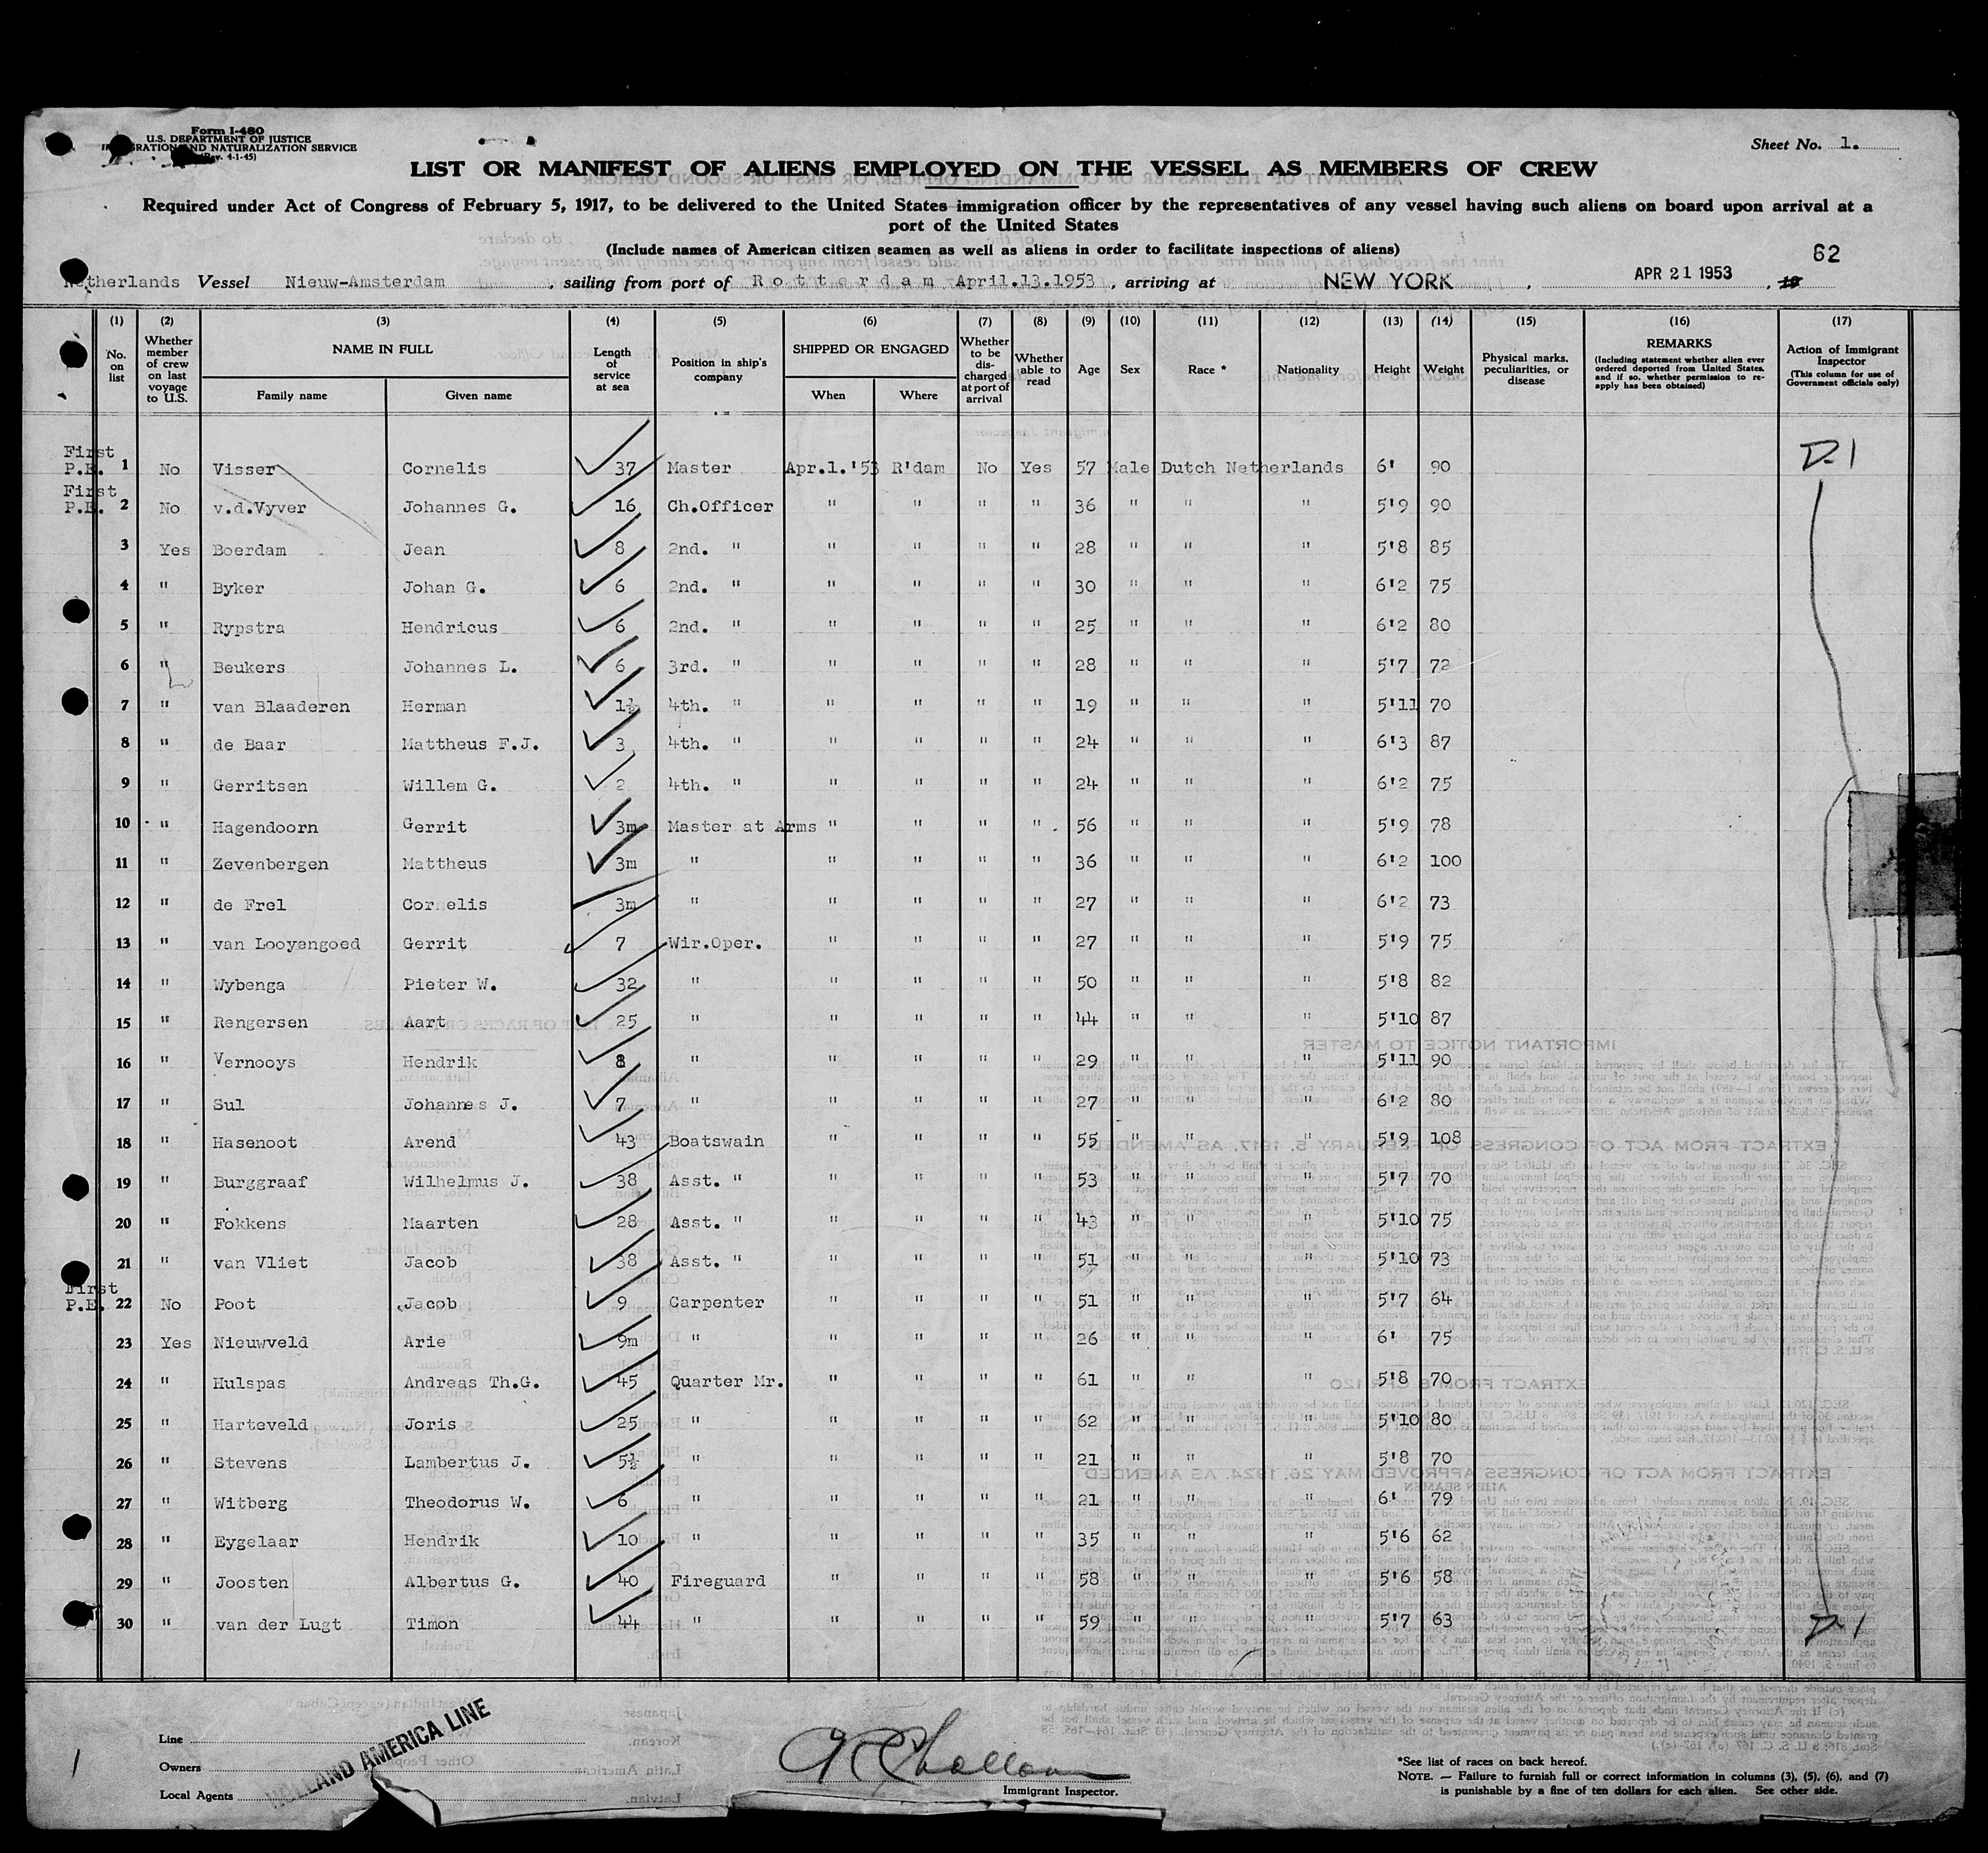 Form I-480
U.S. DEPARTMENT OF JUSTICE
IMMIGRATION AND NATURALIZATION SERVICE
(Rev. 4-1-45)
Sheet No. 1.
LIST OR MANIFEST OF ALIENS EMPLOYED ON THE VESSEL AS MEMBERS OF CREW
Required under Act of Congress of February 5, 1917, to be delivered to the United States immigration officer by the representatives of any vessel having such aliens on board upon arrival at a
port of the United States
(Include names of American citizen seamen as well as aliens in order to facilitate inspections of aliens)
62
Netherlands Vessel Nieuw-Amsterdam , sailing from port of Rotterdam April.13.1953 , arriving at NEW YORK , APR 21 1953 , 19
(1) (2) (3) (4) (5) (6) (7) (8) (9) (10) (11) (12) (13) (14) (15) (16) (17)
No. on list
Whether member of crew on last voyage to U.S.
NAME IN FULL
Family name
Given name
Length of service at sea
Position in ship's company
SHIPPED OR ENGAGED
When
Where
Whether to be discharged at port of arrival
Whether able to read
Age
Sex
Race *
Nationality
Height
Weight
Physical marks, peculiarities, or disease
REMARKS
(Including statement whether alien ever ordered deported from United States, and if so, whether permission to reapply has been obtained)
Action of Immigrant Inspector
(This column for use of Government officials only)
First P.E. 1 No Visser Cornelis 37 Master Apr.1.'53 R'dam No Yes 57 Male Dutch Netherlands 6' 90 D-1
First P.E. 2 No v.d.Vyver Johannes G. 16 Ch.Officer " " " " 36 " " " 5'9 90
3 Yes Boerdam Jean 8 2nd. " " " " " 28 " " " 5'8 85
4 " Byker Johan G. 6 2nd. " " " " " 30 " " " 6'2 75
5 " Rypstra Hendricus 6 2nd. " " " " " 25 " " " 6'2 80
6 " Beukers Johannes L. 6 3rd. " " " " " 28 " " " 5'7 72
7 " van Blaaderen Herman 1½ 4th. " " " " " 19 " " " 5'11 70
8 " de Baar Mattheus F.J. 3 4th. " " " " " 24 " " " 6'3 87
9 " Gerritsen Willem G. 2 4th. " " " " " 24 " " " 6'2 75
10 " Hagendoorn Gerrit 3m Master at Arms " " " " 56 " " " 5'9 78
11 " Zevenbergen Mattheus 3m " " " " " 36 " " " 6'2 100
12 " de Frel Cornelis 3m " " " " " 27 " " " 6'2 73
13 " van Looyengoed Gerrit 7 Wir.Oper. " " " " 27 " " " 5'9 75
14 " Wybenga Pieter W. 32 " " " " " 50 " " " 5'8 82
15 " Rengersen Aart 25 " " " " " 44 " " " 5'10 87
16 " Vernooys Hendrik 8 " " " " " 29 " " " 5'11 90
17 " Sul Johannes J. 7 " " " " " 27 " " " 6'2 80
18 " Hasenoot Arend 43 Boatswain " " " " 55 " " " 5'9 108
19 " Burggraaf Wilhelmus J. 38 Asst. " " " " " 53 " " " 5'7 70
20 " Fokkens Maarten 28 Asst. " " " " " 43 " " " 5'10 75
21 " van Vliet Jacob 38 Asst. " " " " " 51 " " " 5'10 73
First P.E. 22 No Poot Jacob 9 Carpenter " " " " 51 " " " 5'7 64
23 Yes Nieuwveld Arie 9m " " " " " 26 " " " 6' 75
24 " Hulspas Andreas Th.G. 45 Quarter Mr. " " " " 61 " " " 5'8 70
25 " Harteveld Joris 25 " " " " " 62 " " " 5'10 80
26 " Stevens Lambertus J. 5½ " " " " " 21 " " " 5'8 70
27 " Witberg Theodorus W. 6 " " " " " 21 " " " 6' 79
28 " Eygelaar Hendrik 10 " " " " " 35 " " " 5'6 62
29 " Joosten Albertus G. 40 Fireguard " " " " 58 " " " 5'6 58
30 " van der Lugt Timon 44 " " " " " 59 " " " 5'7 63 D-1
1
Line
Owners
Local Agents
HOLLAND AMERICA LINE
Immigrant Inspector.
*See list of races on back hereof.
NOTE. — Failure to furnish full or correct information in columns (3), (5), (6), and (7)
is punishable by a fine of ten dollars for each alien. See other side.